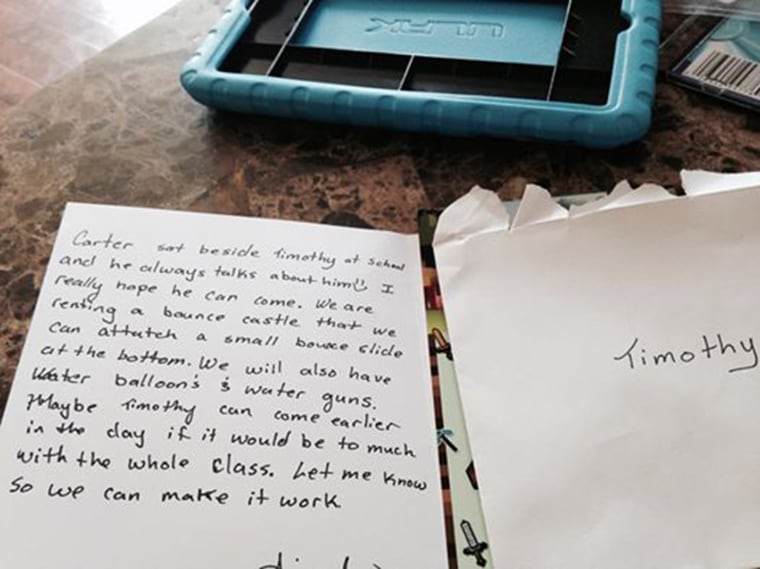 ULAK
Carter sat beside Timothy at School
and he always talks about him I
really hope he can come. We are
renting a bounce castle that we
can attatch a small bounce slide
at the bottom. We will also have
Water balloon's & water guns.
Maybe Timothy can come earlier
in the day if it would be to much
with the whole class. Let me know
so we can make it work
Timothy